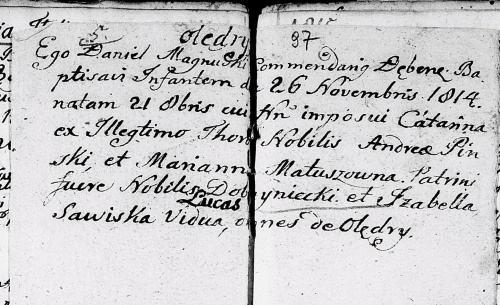 5. Olędry 97
Ego Daniel Magnuski Commendariq Dębene. Ba
ptisavi Infantem d 26 Novembris 1814.
natam 21 8bris cui Nn imposui Catarina
ex Illegtimo Thoro Nobilis Andreæ Pin
ski, et Mariann Matuszowna. Patrini
fuere Nobilis Lucas Dobyniecki, et Izabella
Sawiska Vidua, omnes de Olędry.